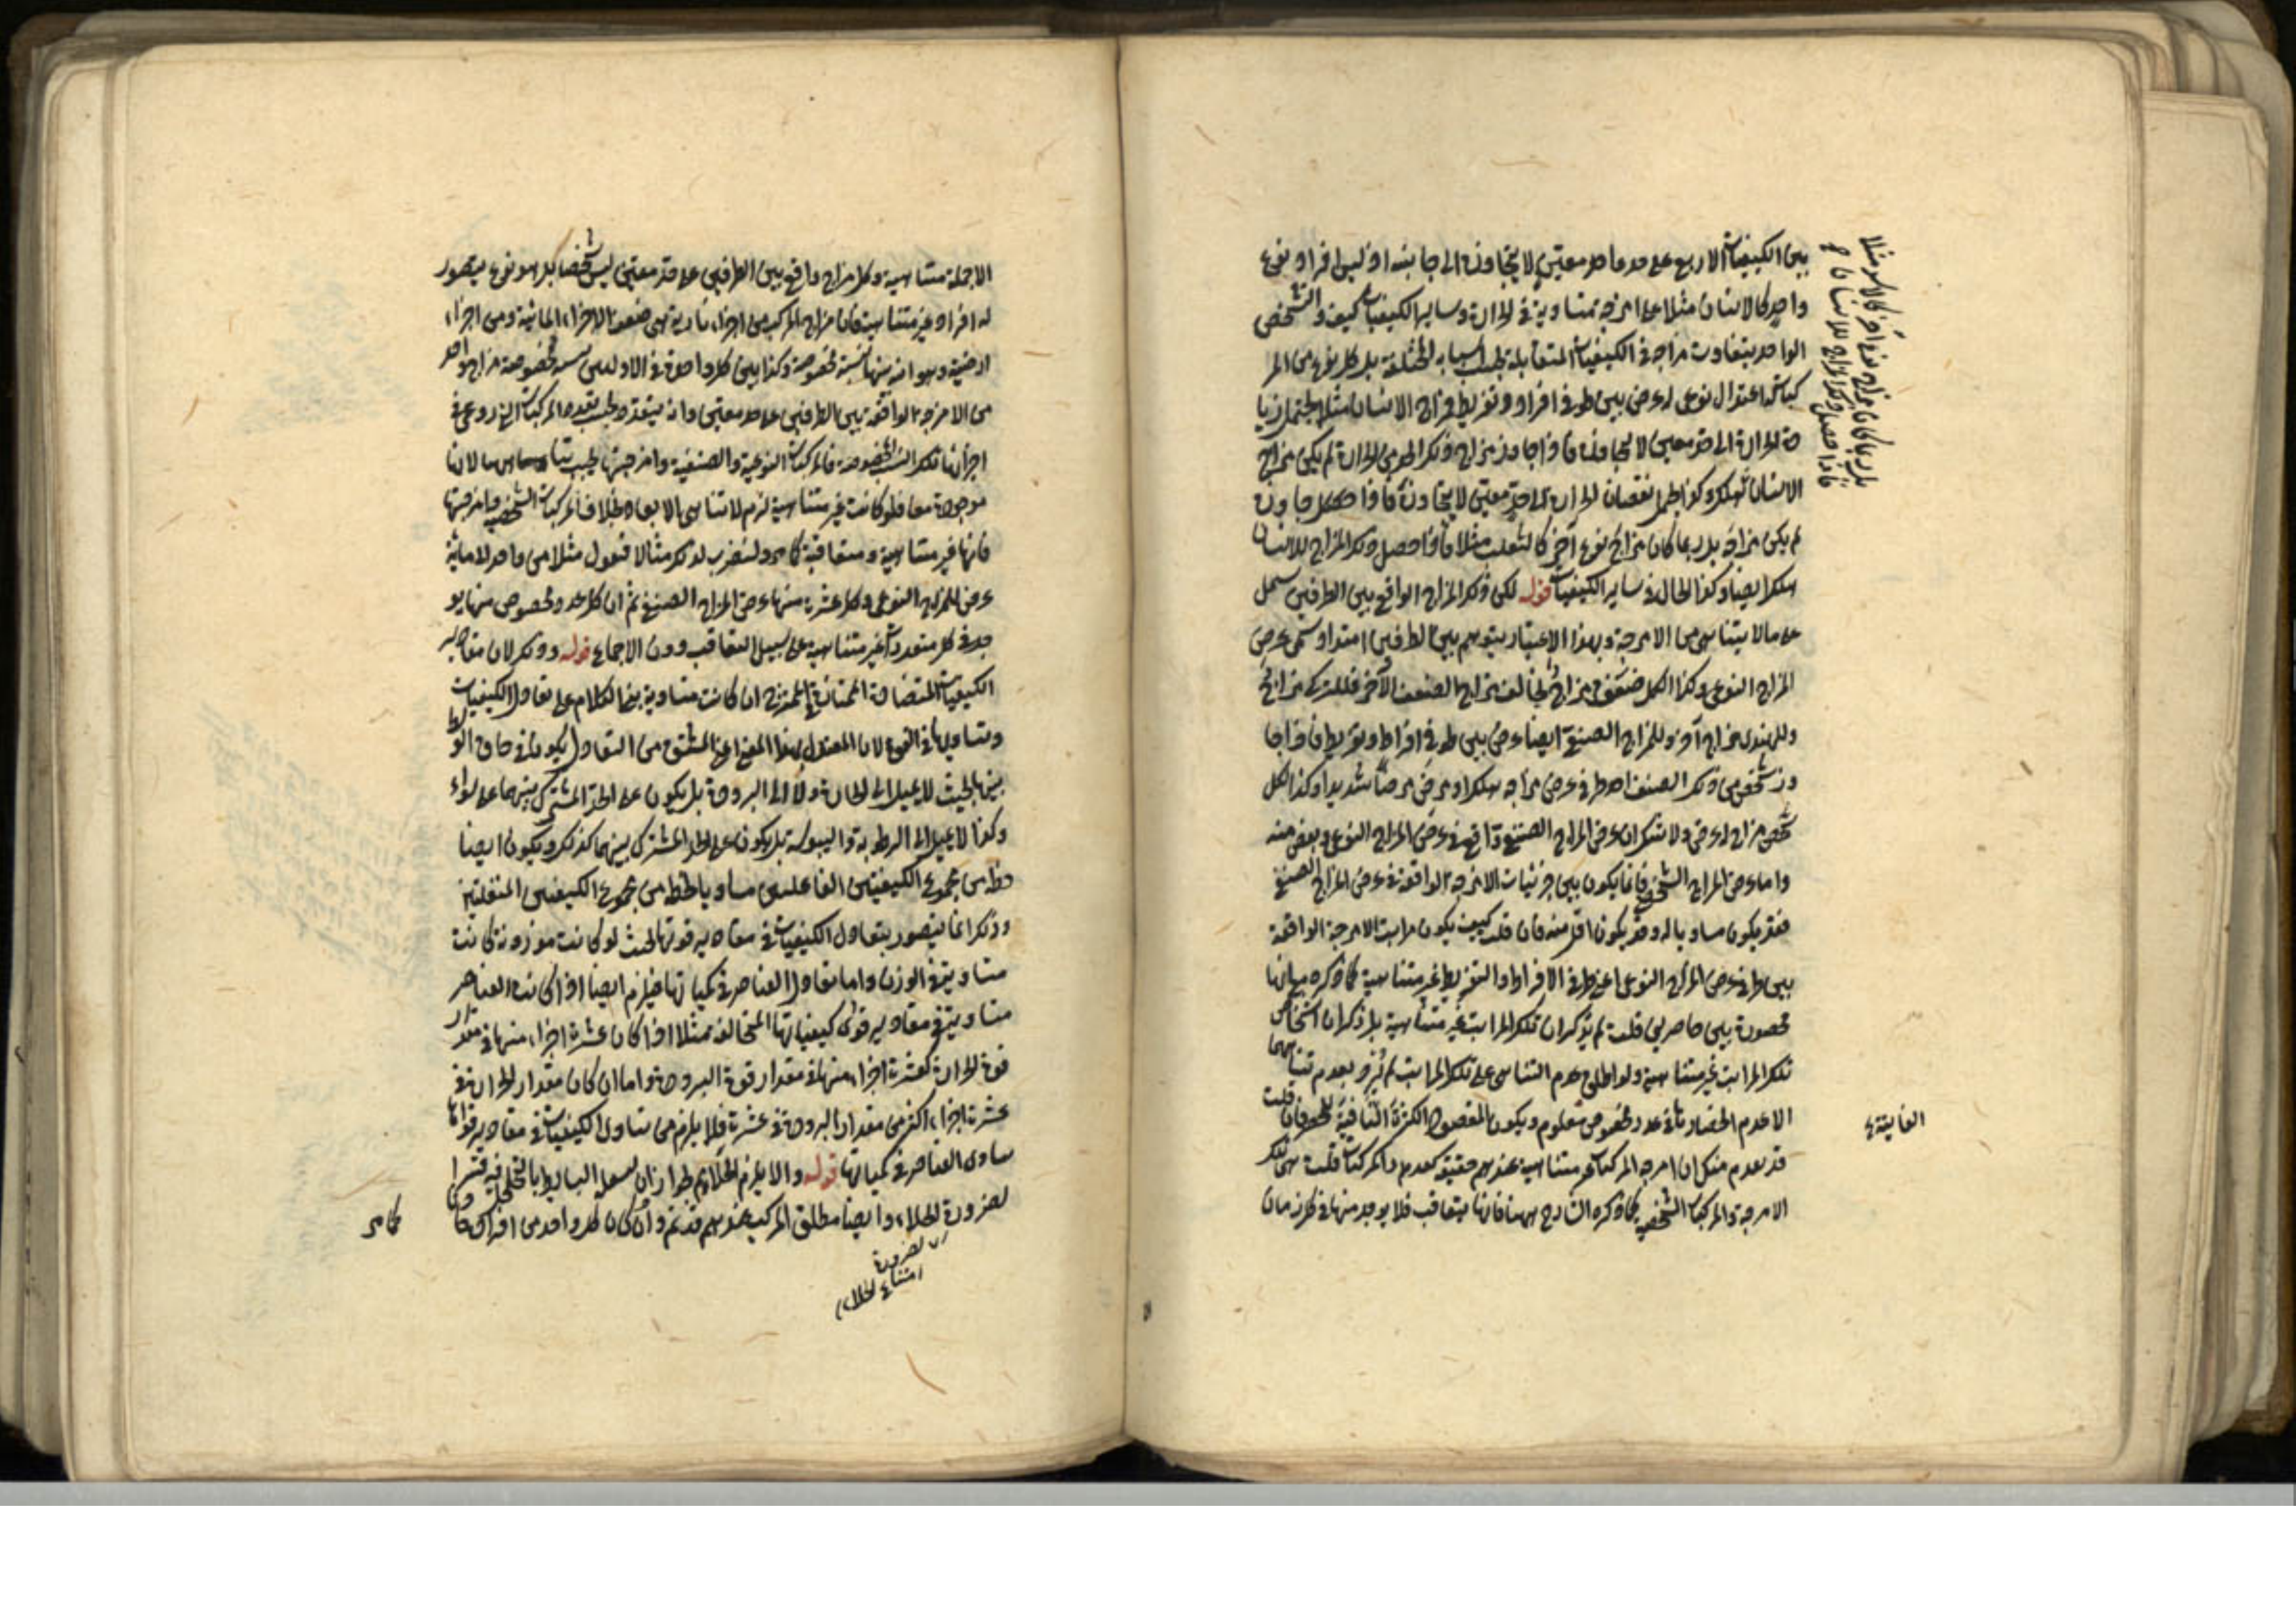 بين الكيفيات الاربع على حد ما معين لا يتجاوزه الى جانبه اذ ليس افراد نوع
واحد كالانسان مثلا على امزجة متساوية في الحرارة وساير الكيفيات كيف والشخص
الواحد يتفاوت مزاجه في الكيفيات المتقابلة بحسب اسبابه المختلفة بل كل نوع من المر
كبات له اعتدال نوعي له عرض بين طرفي افراط وتفريط فمزاج الانسان مثلا يحتمل زيا
دة الحرارة الى حد معين لا يتجاوزه فاذا جاوز مزاج ذلك الحد من الحرارة لم يكن مزاج
الانسان فهلك وكذا يحتمل نقصان الحرارة الى حد معين لا يتجاوزه فاذا جاوزه
لم يكن مزاجه بل ربما كان مزاج نوع آخر كالثعلب مثلا فاذا حصل ذلك المزاج للانسان
هلك ايضا وكذا الحال في ساير الكيفيات قوله لكن ذلك المزاج الواقع بين الطرفين يشتمل
على ما لا يتناهى من الامزجة وبهذا الاعتبار يتوهم بين الطرفين امتداد يسمى عرض
المزاج النوعي وكذا لكل صنف مزاج يخالف مزاج الصنف الآخر فللترك مزاج
وللهندي مزاج آخر وللمزاج الصنفي ايضا عرض بين طرفي افراط وتفريط فاذا جا
وز شخص من ذلك الصنف احد طرفي عرض مزاجه هلك او مرض مرضا شديدا وكذا لكل
شخص مزاج له عرض ولا شك ان عرض المزاج الصنفي واقع في عرض المزاج النوعي وبعض منه
واما عرض المزاج الشخصي فانما يكون بين جزئيات الامزجة الواقعة في عرض المزاج الصنفي
فقد يكون مساويا له وقد يكون اقل منه فان قلت كيف يكون مراتب الامزجة الواقعة
بين طرفي عرض المزاج النوعي اعني طرفي الافراط والتفريط غير متناهية كما ذكره مع انها
محصورة بين حاصرين قلت لم يذكر ان تلك المراتب غير متناهية بل ذكر ان اشخاص
تلك المراتب غير متناهية ولو اطلق عدم التناهي على تلك المراتب لم يرد بعدم تناهيها
الا عدم انحصارها في عدد مخصوص معلوم ويكون المقصود الكثرة النافية للحصر فان قلت
قد تقدم منك ان امزجة المركبات غير متناهية عندهم حقيقة كعدد المركبات قلت هي تلك
الامزجة والمركبات الشخصية كما ذكره الشارح ههنا فانها يتعاقب فلا يوجد منها في كل زمان
بل ربما كان مزاج نوع آخر كالاسد مثلا
فاذا حصل ذلك المزاج للانسان
الفايقة
الا جملة متناهية وكل مزاج واقع بين الطرفين على حد معين ليس شخصا بل هو نوع يتصور
له افراد غير متناهية فان مزاج المركب من اجزاء نارية هي ضعف الاجزاء المائية ومن اجزاء
ارضية وهوائية بينها نسبة مخصوصة وكذا بين كل واحدة من الاوليين نسبة مخصوصة مزاج واحد
من الامزجة الواقعة بين الطرفين على حد معين وانه يتعدد بحسب تعدد المركبات التي روعي في
اجزائها تلك النسب المخصوصة فالمركبات النوعية والصنفية وامزجتها يجب تناهيها لانها
موجودة معا فلو كانت غير متناهية لزم لا تناهي الابعاد بخلاف المركبات الشخصية وامزجتها
فانها غير متناهية ومتعاقبة كما مر ولنضرب لذلك مثالا فنقول مثلا من واحد الى مائة
عرض للمزاج النوعي وكل عشرة منها عرض المزاج الصنفي ثم ان كل عدد مخصوص منها يو
جد في كل متعددات غير متناهية على سبيل التعاقب دون الاجماع قوله وذلك لان مقادير
الكيفيات المتضادة المتمانعة في الممتزج ان كانت متساوية بنى الكلام على تعادل الكيفيات
وتساويها في القوة لان المعتدل بهذا المعنى اعني المشتق من التعادل يكون في حاق الوسط
بينها بحيث لا يميل الى الحرارة ولا الى البرودة بل يكون على الحد المشترك بينهما على سواء
وكذا لا يميل الى الرطوبة واليبوسة بل يكون على الحد المشترك بينهما كذلك ويكون ايضا
حظه من مجموع الكيفيتين الفاعلتين مساويا لحظه من مجموع الكيفيتين المنفعلتين
وذلك انما يتصور بتعادل الكيفيات في مقادير قوتها بحيث لو كانت موزونة كانت
متساوية في الوزن واما تعادل العناصر في كمياتها فيلزم ايضا اذا كانت العناصر
متساوية في مقادير قوى كيفياتها المتخالفة مثلا اذا كان عشرة اجزاء منها في مقدار
قوة الحرارة كعشرة اجزاء منها في مقدار قوة البرودة واما ان كان مقدار الحرارة في
عشرة اجزاء اكثر من مقدار البرودة في عشرة فلا يلزم من تساوي الكيفيات في مقادير قواها
تساوي العناصر في كمياتها قوله والا يلزم الخلاء لجواز ان البسايط بالتخلخل فيه قسرا
لضرورة الخلاء وايضا مطلق المركب عندهم قديم وان كان كل واحد من افراده حادثا
لضرورة
امتناع الخلاء
كما مر